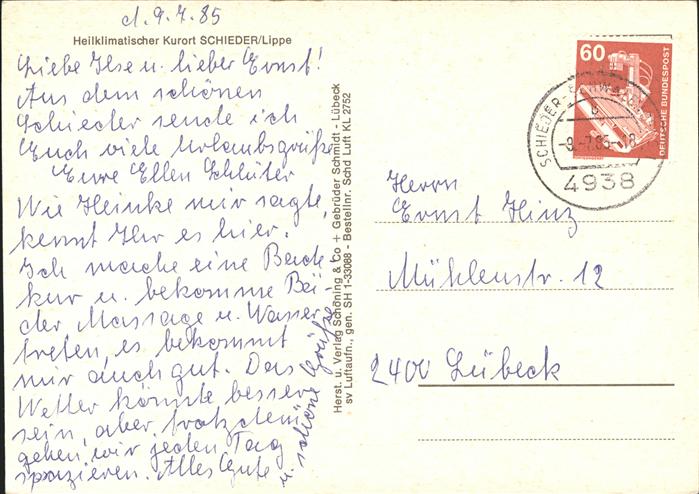 d. 9.7.85
Heilklimatischer Kurort SCHIEDER/Lippe
Liebe Ilse u. lieber Ernst!
Aus dem schönen
Schieder sende ich
Euch viele Urlaubsgrüße
Eure Ellen Schlüter
Wie Heinke mir sagte,
kennt Ihr es hier.
Ich mache eine Bade
kur u. bekomme Bä
der Massage u. Wasser
treten, es bekommt
mir auch gut. Das
Wetter könnte besser
sein, aber trotzdem
gehen wir jeden Tag
spazieren. Alles Gute
u. schöne Grüße
Herst. u. Verlag Schöning & Co + Gebrüder Schmidt - Lübeck
sv Luftaufn., gen. SH 1-33088 - Bestellnr. Schd Luft KL 2752
60
DEUTSCHE BUNDESPOST
SCHIEDER-
-9.-7.85-18
4938
Herrn
Ernst Hinz
Mühlenstr. 12
2400 Lübeck